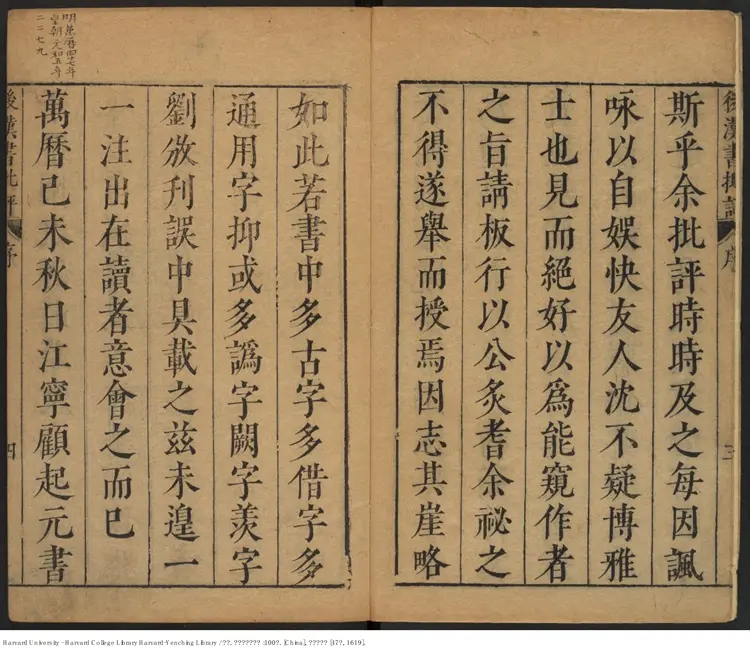 後漢書批評
序
三
斯乎余批評時時及之每因諷
咏以自娛快友人沈不疑博雅
士也見而絕好以爲能窺作者
之旨請板行以公炙耆余祕之
不得遂舉而授焉因志其崖略
如此若書中多古字多借字多
通用字抑或多譌字闕字羨字
劉攽刊誤中具載之茲未遑一
一注出在讀者意會之而已
萬曆己未秋日江寧顧起元書
後漢書批評
序
四
明萬曆四十七年
皇朝元和五年
二二七九
Harvard University - Harvard College Library Harvard-Yenching Library / ??. ??????? :100?. [China], ????? [17?, 1619].